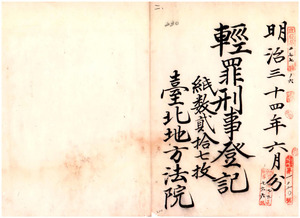 明治三十四年六月分
輕罪刑事登記
紙数貳拾七枚
臺北地方法院